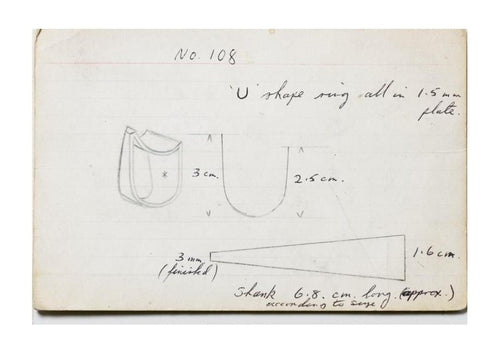 No. 108
'U' shape ring all in 1.5 mm
plate.
*
3 cm.
2.5 cm.
3 mm.
(finished)
1.6 cm.
Shank 6.8. cm. long. (approx.)
according to size